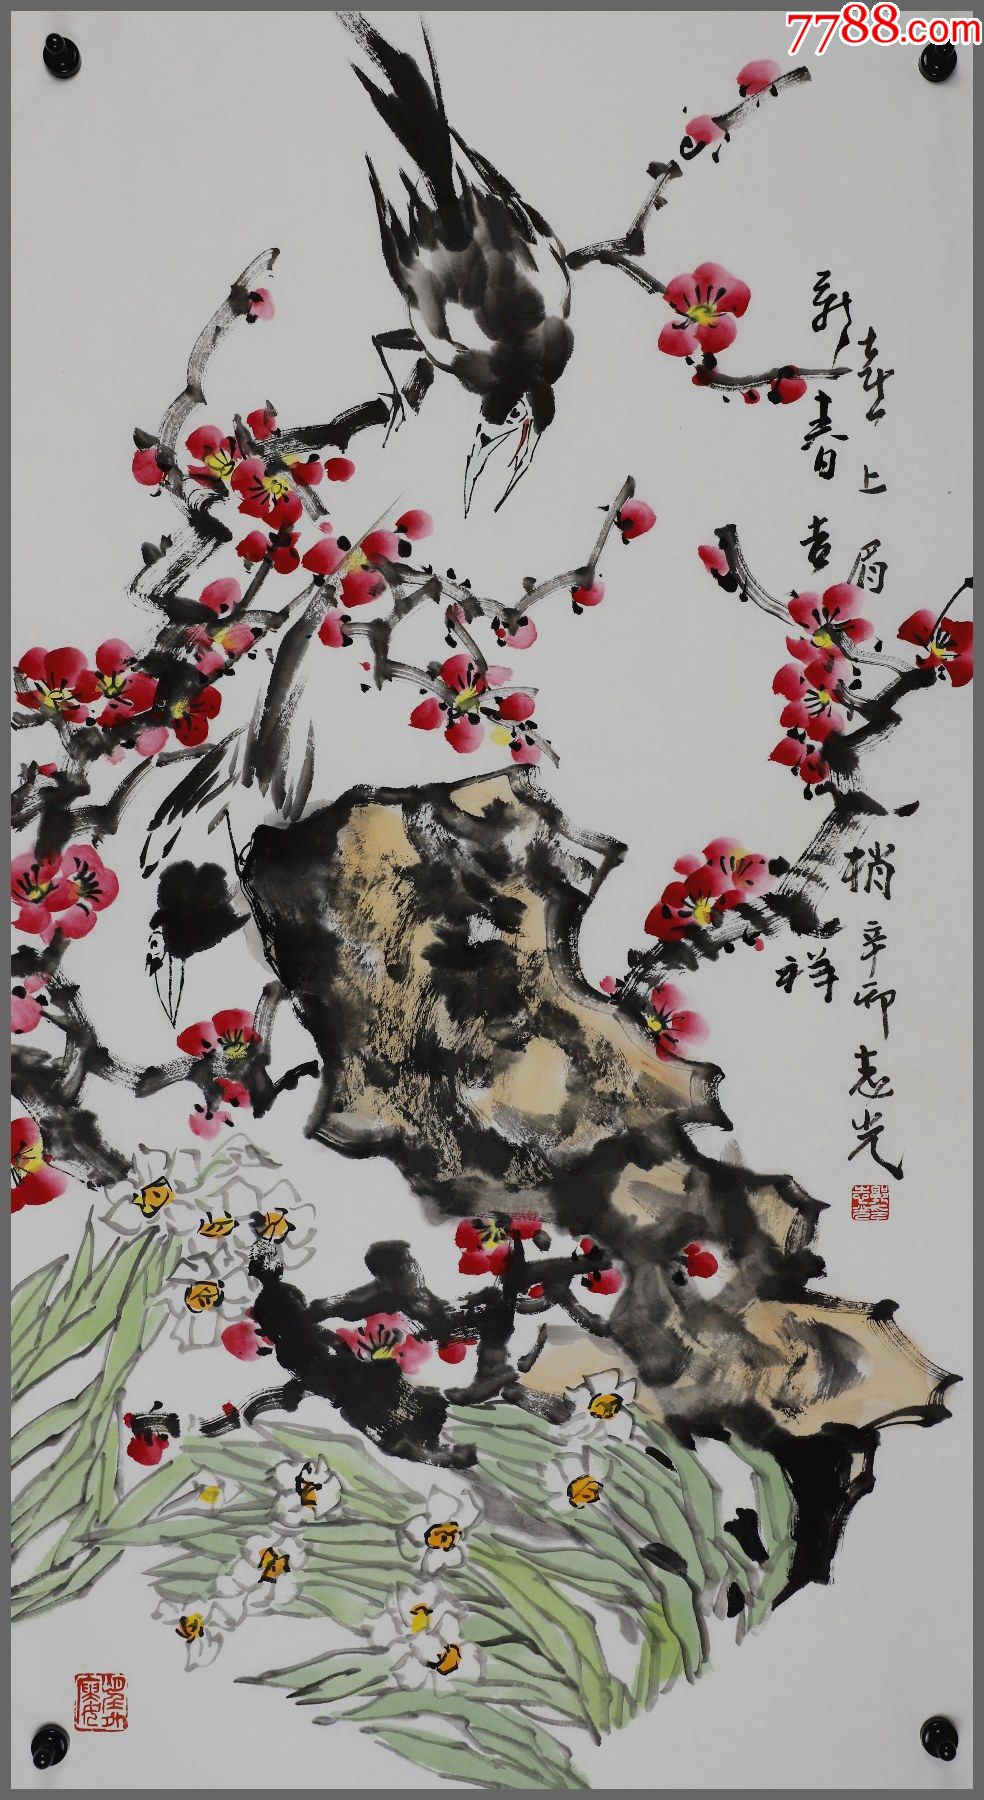 7788.com
喜上眉梢
辛卯志光
新春吉祥